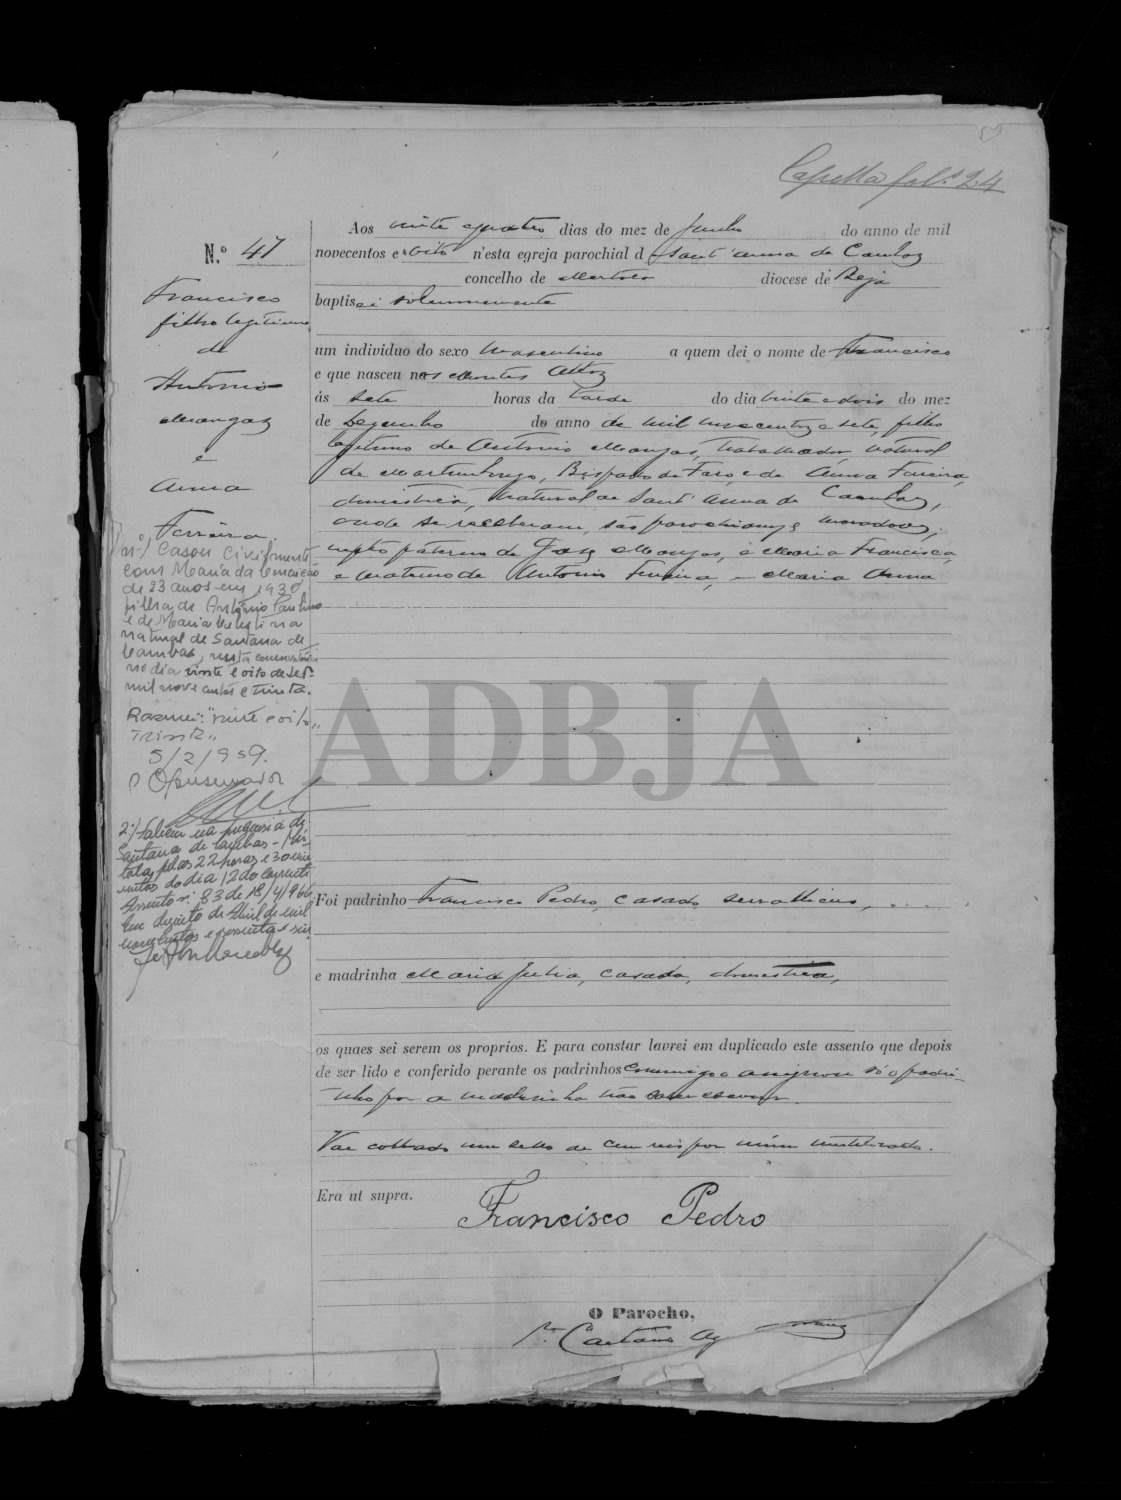 Capella fol. 24
Aos vinte e quatro dias do mez de Junho do anno de mil
N.º 47
novecentos e oito n'esta egreja parochial d Sant'anna de Cambas
concelho de Mertola diocese de Beja
baptisei solemnemente
um individuo do sexo masculino a quem dei o nome de Francisco
e que nasceu nos Montes Altos
ás sete horas da tarde do dia vinte e dois do mez
de Dezembro do anno de mil novecentos e sete, filho
legitimo de Antonio Mangas, trabalhador, natural
de Martinlongo, Bispado de Faro, e de Anna Ferreira,
domestica, natural de Sant'Anna de Cambas,
onde se receberam, são parochianos e moradores,
neto paterno de José Mangas, e Maria Francisca,
e materno de Antonio Ferreira, e Maria Anna
Francisco
filho legitimo
de
Antonio
Mangas
e
Anna
Ferreira
nº1 Casou civilmente
com Maria da Conceição
de 23 anos em 1930
filha de António Paulino
e de Maria
natural de Santana de
Cambas, nesta conservatória
no dia vinte e oito de
mil novecentos e trinta.
"vinte e oito,,
trinta,,
5/2/959.
O Conservador
2º) Faleceu na freguesia de
Santana de Cambas - Mér-
tola, pelas 22 horas e 30 mi-
nutos do dia 12 do corrente
Assento nº 83 de 18/4/966
Em dezoito de Abril de mil
novecentos e sessenta e seis
ADBJA
Foi padrinho Francisco Pedro, casado,
e madrinha Maria Julia, casada, domestica,
os quaes sei serem os proprios. E para constar lavrei em duplicado este assento que depois
de ser lido e conferido perante os padrinhos commigo assignou só o padri-
nho por a madrinha não saber escrever.
Vae collado um sello de cem reis por mim inutilizado.
Era ut supra.
Francisco Pedro
O Parocho,
Caetano